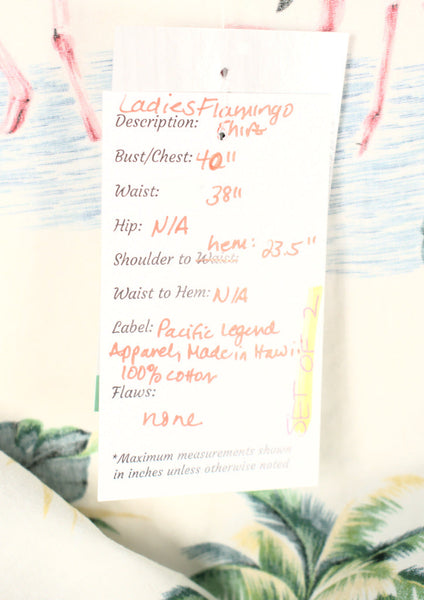 Ladies Flamingo
Description: Shirt
Bust/Chest: 40"
Waist: 38"
Hip: N/A
hem: 23.5"
Shoulder to Waist:
Waist to Hem: N/A
Label: Pacific Legend
Apparel, Made in Hawii
100% cotton
Flaws:
none
*Maximum measurements shown
in inches unless otherwise noted
SET OF 2